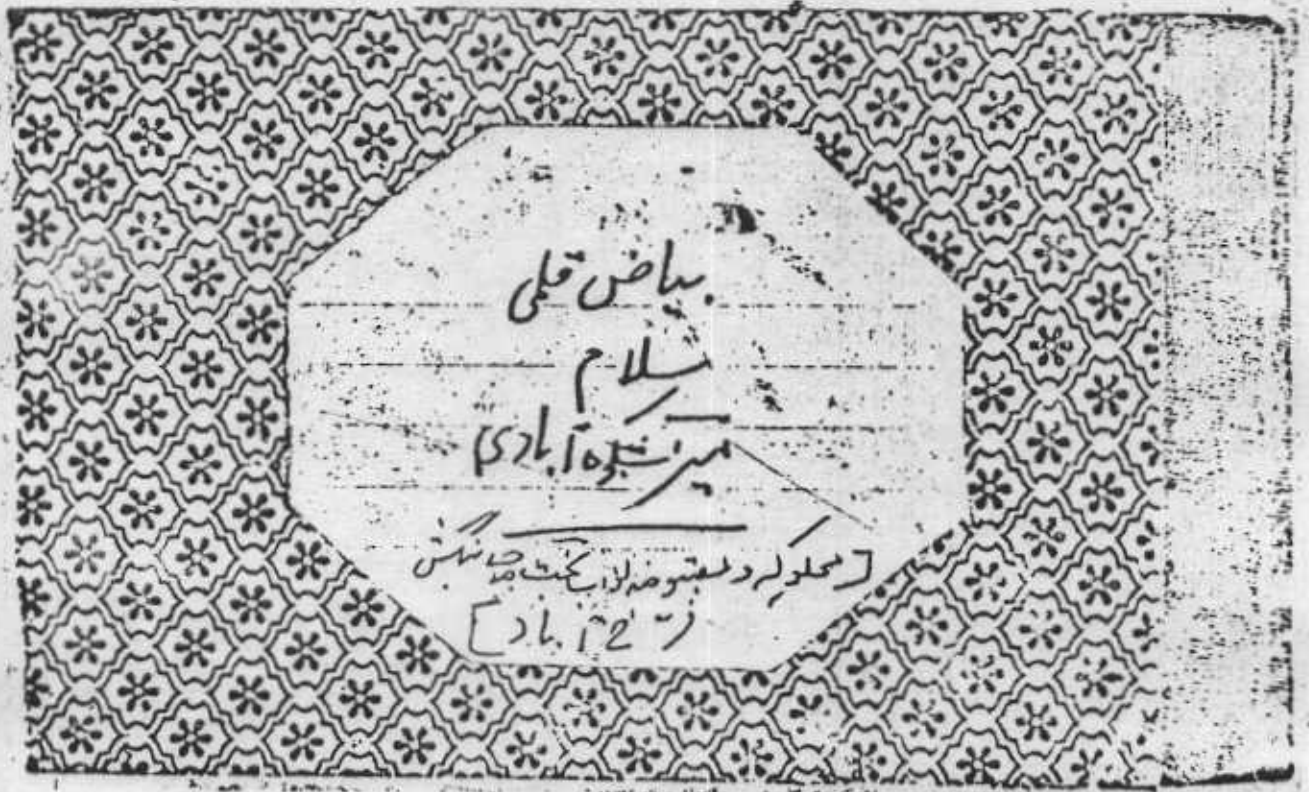 بیاض قلمی
سلام
منیر شکوہ آبادی
[مملوکہ و مقبوضہ نواب بخت
آباد]